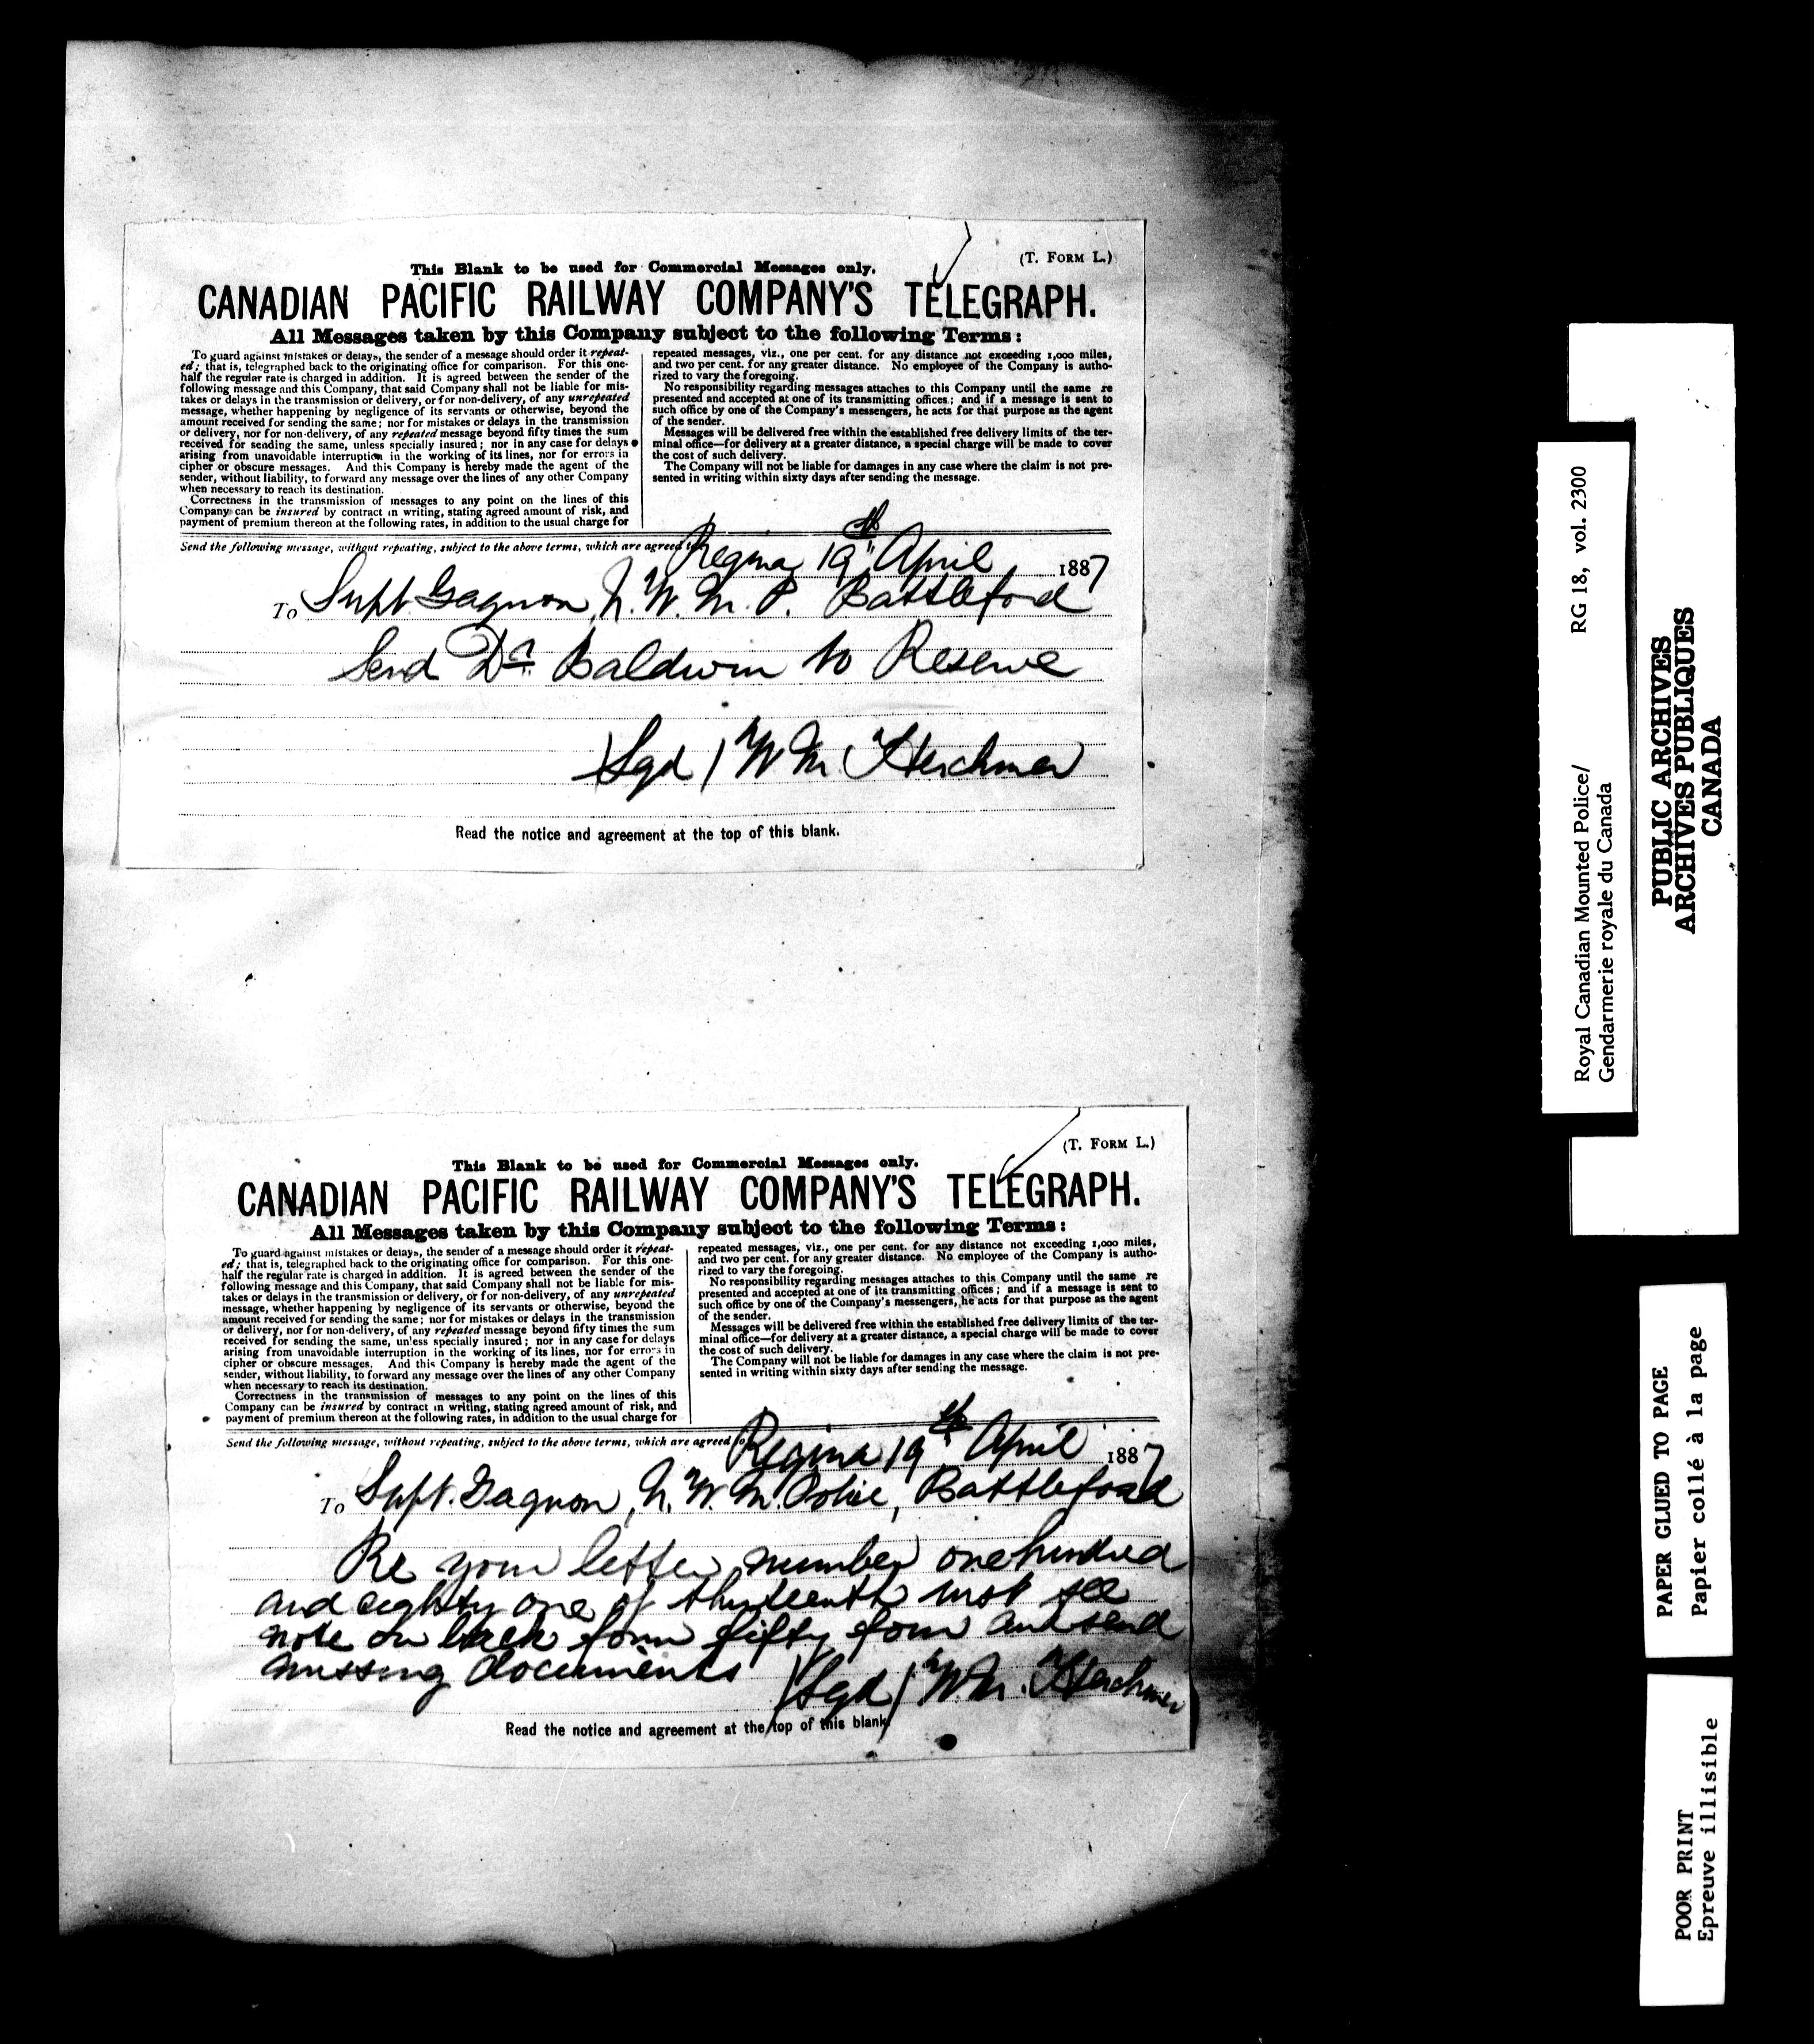 (T. FORM L.)
This Blank to be used for Commercial Messages only.
CANADIAN PACIFIC RAILWAY COMPANY'S TELEGRAPH.
All Messages taken by this Company subject to the following Terms:
To guard against mistakes or delays, the sender of a message should order it repeat-
ed; that is, telegraphed back to the originating office for comparison. For this one-
half the regular rate is charged in addition. It is agreed between the sender of the
following message and this Company, that said Company shall not be liable for mis-
takes or delays in the transmission or delivery, or for non-delivery, of any unrepeated
message, whether happening by negligence of its servants or otherwise, beyond the
amount received for sending the same; nor for mistakes or delays in the transmission
or delivery, nor for non-delivery, of any repeated message beyond fifty times the sum
received for sending the same, unless specially insured; nor in any case for delays
arising from unavoidable interruption in the working of its lines, nor for errors in
cipher or obscure messages. And this Company is hereby made the agent of the
sender, without liability, to forward any message over the lines of any other Company
when necessary to reach its destination.
Correctness in the transmission of messages to any point on the lines of this
Company can be insured by contract in writing, stating agreed amount of risk, and
payment of premium thereon at the following rates, in addition to the usual charge for
repeated messages, viz., one per cent. for any distance not exceeding 1,000 miles,
and two per cent. for any greater distance. No employee of the Company is autho-
rized to vary the foregoing.
No responsibility regarding messages attaches to this Company until the same re
presented and accepted at one of its transmitting offices; and if a message is sent to
such office by one of the Company's messengers, he acts for that purpose as the agent
of the sender.
Messages will be delivered free within the established free delivery limits of the ter-
minal office—for delivery at a greater distance, a special charge will be made to cover
the cost of such delivery.
The Company will not be liable for damages in any case where the claim is not pre-
sented in writing within sixty days after sending the message.
Send the following message, without repeating, subject to the above terms, which are agreed to.
Regina 19th April 1887
To Supt Gagnon, N. W. M. P. Battleford
Send Dr. Baldwin to Reserve
(Sgd) L W Herchmer
Read the notice and agreement at the top of this blank.
(T. FORM L.)
This Blank to be used for Commercial Messages only.
CANADIAN PACIFIC RAILWAY COMPANY'S TELEGRAPH.
All Messages taken by this Company subject to the following Terms:
To guard against mistakes or delays, the sender of a message should order it repeat-
ed; that is, telegraphed back to the originating office for comparison. For this one-
half the regular rate is charged in addition. It is agreed between the sender of the
following message and this Company, that said Company shall not be liable for mis-
takes or delays in the transmission or delivery, or for non-delivery, of any unrepeated
message, whether happening by negligence of its servants or otherwise, beyond the
amount received for sending the same; nor for mistakes or delays in the transmission
or delivery, nor for non-delivery, of any repeated message beyond fifty times the sum
received for sending the same, unless specially insured; nor in any case for delays
arising from unavoidable interruption in the working of its lines, nor for errors in
cipher or obscure messages. And this Company is hereby made the agent of the
sender, without liability, to forward any message over the lines of any other Company
when necessary to reach its destination.
Correctness in the transmission of messages to any point on the lines of this
Company can be insured by contract in writing, stating agreed amount of risk, and
payment of premium thereon at the following rates, in addition to the usual charge for
repeated messages, viz., one per cent. for any distance not exceeding 1,000 miles,
and two per cent. for any greater distance. No employee of the Company is autho-
rized to vary the foregoing.
No responsibility regarding messages attaches to this Company until the same re
presented and accepted at one of its transmitting offices; and if a message is sent to
such office by one of the Company's messengers, he acts for that purpose as the agent
of the sender.
Messages will be delivered free within the established free delivery limits of the ter-
minal office—for delivery at a greater distance, a special charge will be made to cover
the cost of such delivery.
The Company will not be liable for damages in any case where the claim is not pre-
sented in writing within sixty days after sending the message.
Send the following message, without repeating, subject to the above terms, which are agreed to.
Regina 19th April 1887
To Supt. Gagnon, N. W. M. Police, Battleford
Re your letter number one hundred
and eighty one of thirteenth inst see
note on back form fifty four and send
missing documents (Sgd) Herchmer
Read the notice and agreement at the top of this blank
Royal Canadian Mounted Police/ RG 18, vol. 2300
Gendarmerie royale du Canada
PUBLIC ARCHIVES
ARCHIVES PUBLIQUES
CANADA
PAPER GLUED TO PAGE
Papier collé à la page
POOR PRINT
Epreuve illisible